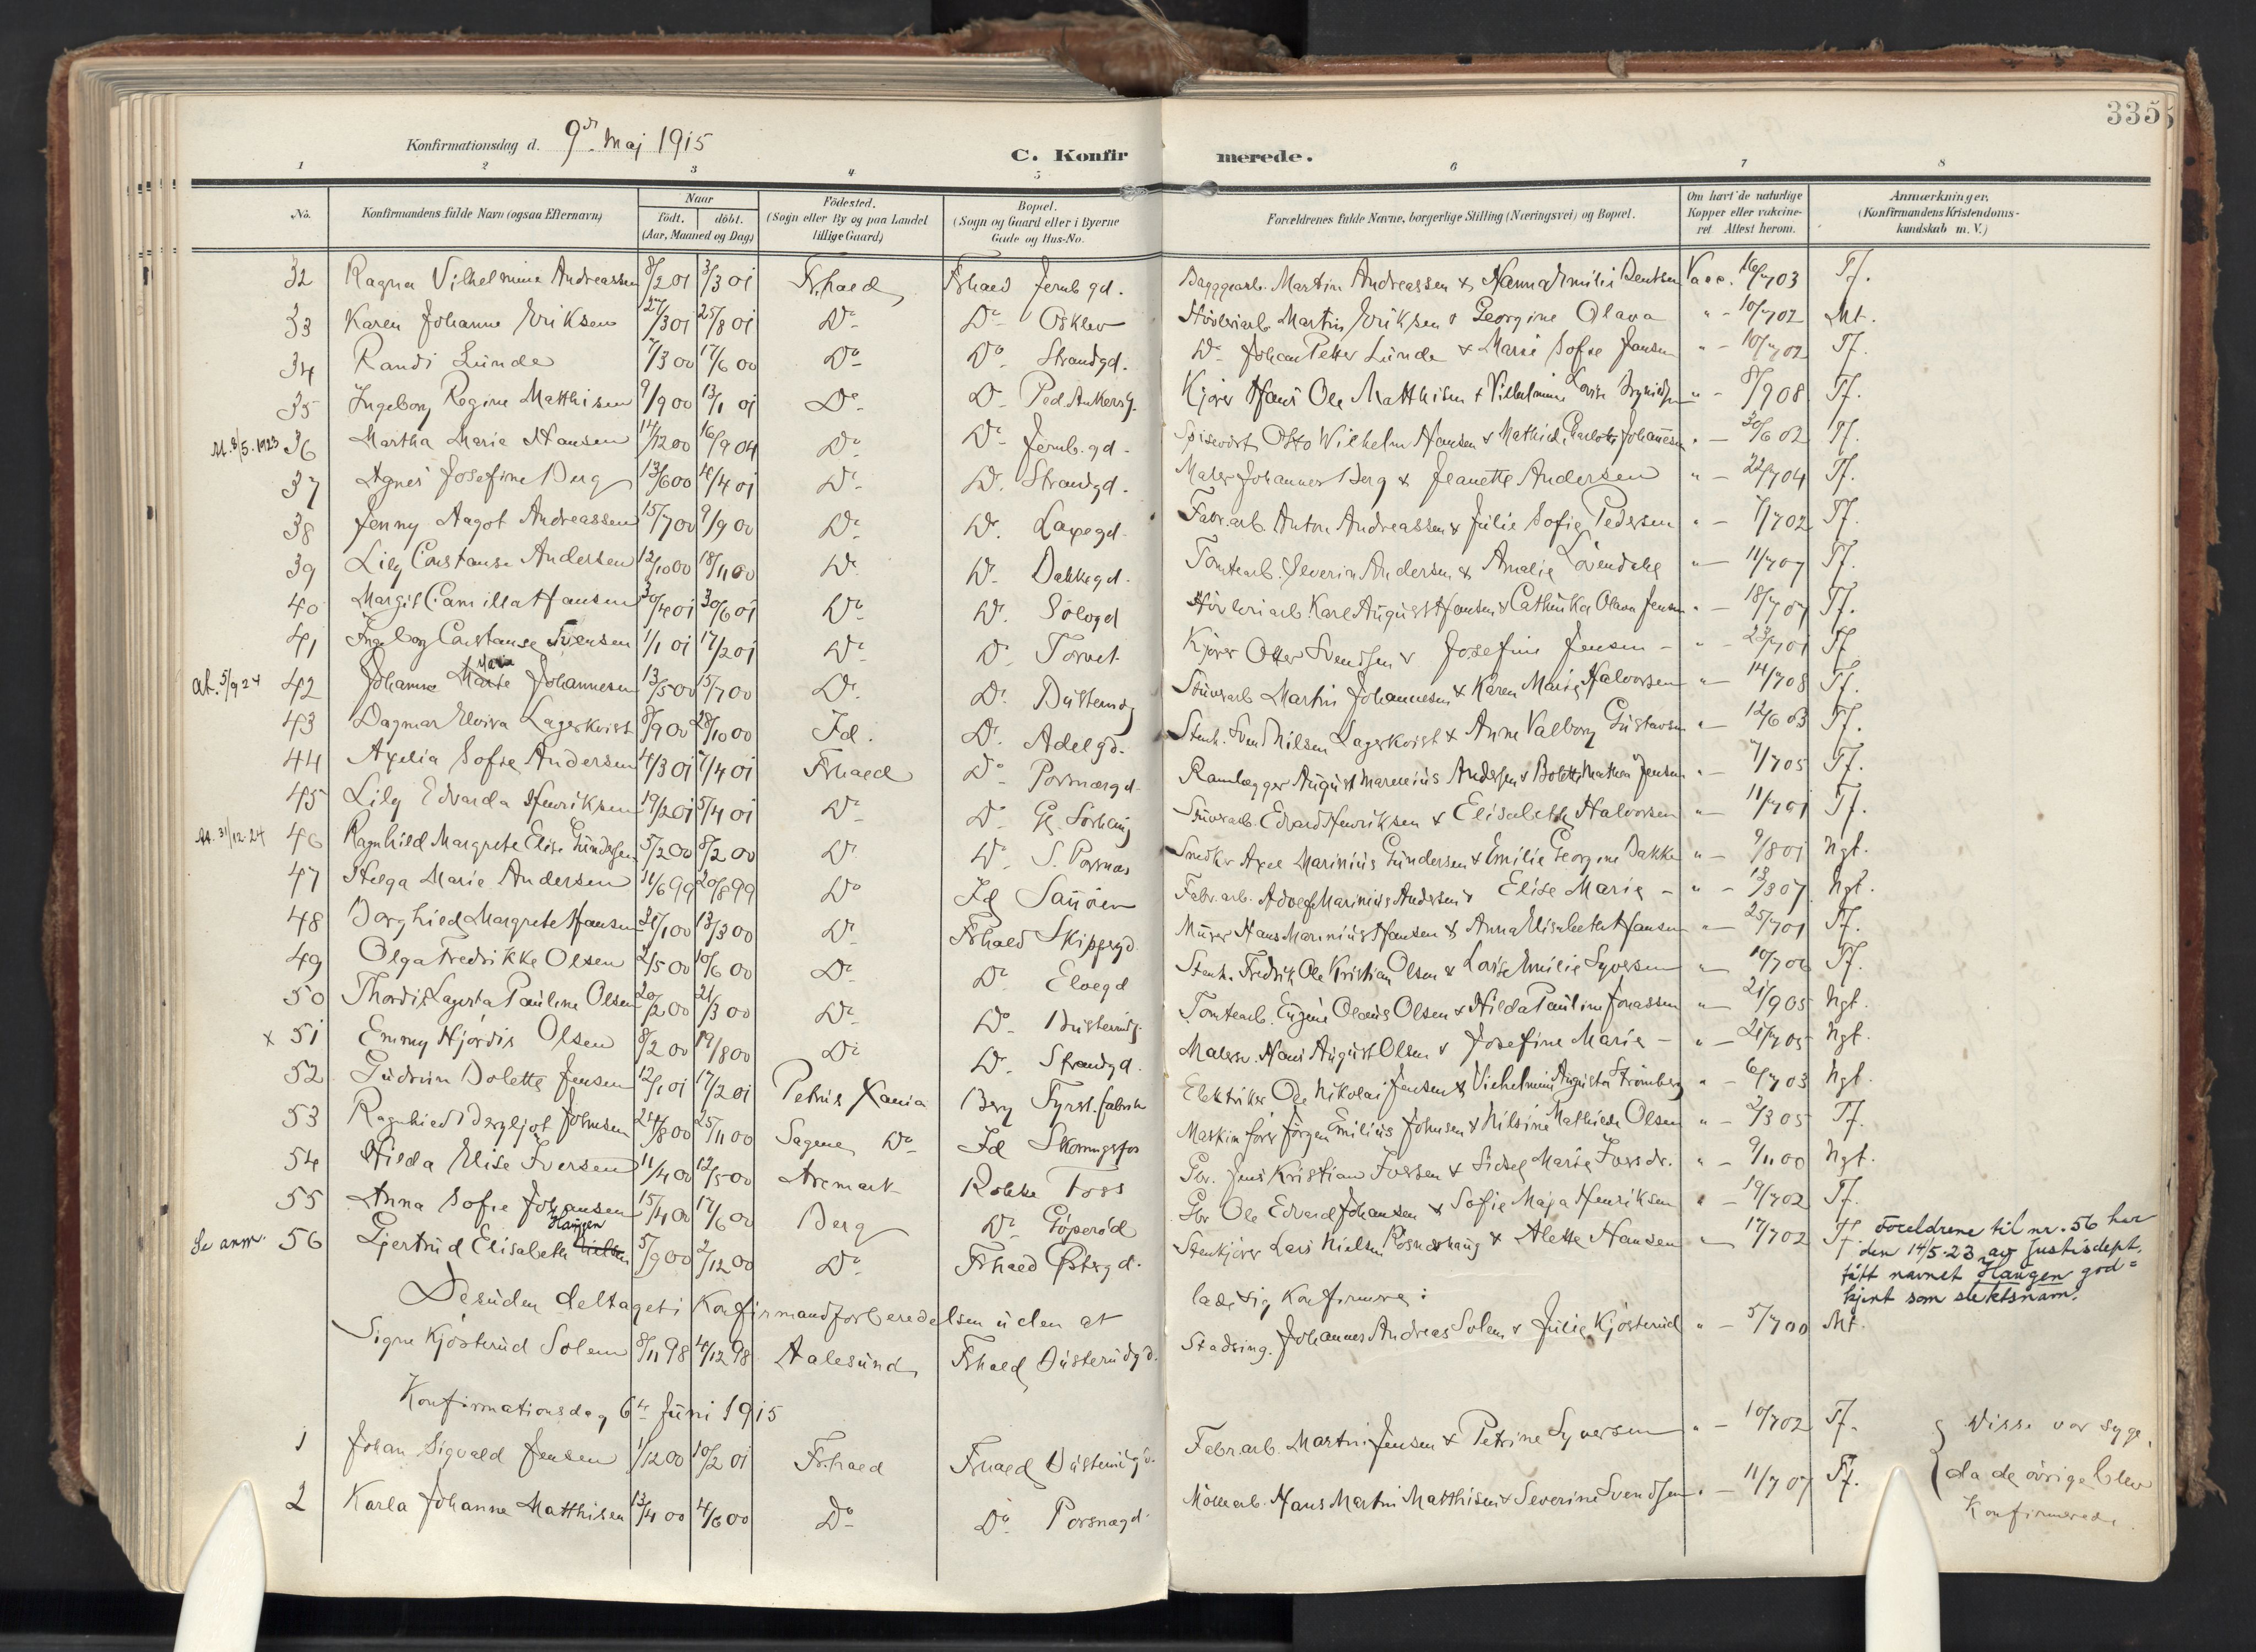 335
Konfirmationsdag d. 9de Maj 1915
C. Konfirmerede.
1 2 3 4 5 6 7 8
No. Konfirmandens fulde Navn (ogsaa Efternavn) Naar født. døbt. (Aar, Maaned og Dag) Fødested. (Sogn eller By og paa Landet tillige Gaard) Bopæl. (Sogn og Gaard eller i Byerne Gade og Hus-No. Forældrenes fulde Navne, borgerlige Stilling (Næringsvei) og Bopæl. Om havt de naturlige Kopper eller vakcineret Attest herom. Anmærkninger. (Konfirmandens Kristendomskundskab m. V.)
32 Ragna Vilhelmine Andreassen 8/2 01 3/3 01 Frhald Frhald Jernb.gd. Martin Andreassen & Hanna Emilie Berntsen Vacc. 16/7 03 Tf.
33 Karen Johanne Eriksen 27/3 01 25/8 01 Do Do Osklev Høvleriarb. Martin Eriksen & Georgine Olava " - 10/7 02 Mt.
34 Randi Lunde 7/3 00 17/6 00 Do Do Strandgd. Do Johan Petter Lunde & Marie Sofie Jansen " - 10/7 02 Tf.
35 Ingeborg Regine Matthisen 9/9 00 13/1 01 Do Do Ped. Ankersg. Kjører Hans Ole Matthisen & Vilhelmine Lovise " - 8/9 08 Tf.
At. 8/5.1923 36 Martha Marie Hansen 14/12 00 16/9 04 Do Do Jernb.gd. Spisevært Otto Wilhelm Hansen & Mathilde Charlotte Johannesen " - 30/6 02 Tf.
37 Agnes Josefine Berg 13/6 00 4/4 01 Do Do Strandgd. Maler Johannes Berg & Jeanette Andersen " - 22/7 04 Tf.
38 Jenny Aagot Andreassen 15/7 00 9/9 00 Do Do Laxegd. Fabr.arb. Anton Andreassen & Julie Sofie Pedersen " - 7/7 02 Tf.
39 Lily Constanse Andersen 12/10 00 18/11 00 Do Do Bakkegd. Tomtearb. Severin Andersen & Amalie Løvendahl " - 11/7 07 Tf.
40 Margit Camilla Hansen 30/4 01 30/6 01 Do Do Solvgd Høvleriarb. Karl August Hansen & Cathinka Olava Jensen " - 18/7 07 Tf.
41 Ingeborg Constanse Svensen 1/1 01 17/2 01 Do Do Torvet Kjører Otter Svendsen & Josefine Jensen - " - 23/7 01 Tf
At. 5/9 24 42 Johanne Marie Maria Johannesen 13/5 00 15/7 00 Do Do Busterudg Stuverarb Martin Johannesen & Karen Marie Halvorsen " - 14/7 08 Tf.
43 Dagmar Elvira Lagerkvist 8/9 00 28/10 00 Id. Do Adelgd. Stenh. Sven Nilsen Lagerkvist & Anne Valborg Gustavsen " - 12/6 03 Tf.
44 Axelia Sofie Andersen 4/3 01 7/4 01 Frhald Do Porsnæsgd. Ramlægger August Marenius Andersen & Bolette Mathea Jensen " - 7/7 05 Tf.
45 Lily Edvarda Henriksen 19/2 01 5/4 01 Do Do Gl. Sørhaug Stuverarb. Edvard Henriksen & Elisabeth Halvorsen " - 11/7 01 Tf.
At. 31/12.24 46 Ragnhild Margrete Elise Gundersen 5/2 00 8/2 00 Do Do S. Porsnæs Snedker Axel Marinius Gundersen & Emilie Georgine Bakke " - 9/8 01 Ngt.
47 Helga Marie Andersen 11/6 99 20/8 99 Do Id Sauøen Fabr.arb. Adolf Marinius Andersen & Elise Marie - " - 13/3 07 Ngt.
48 Borghild Margrete Hansen 31/1 00 18/3 00 Do Frhald Skippergd Murer Hans Marinius Hansen & Anna Elisabeth Hansen " - 25/7 01 Tf.
49 Olga Fredrikke Olsen 2/5 00 10/6 00 Do Do Elvegd Stenh. Fredrik Ole Kristian Olsen & Lovise Emilie Syversen " 10/7 06 Tf.
50 Thordis Lagerta Pauline Olsen 20/2 00 21/3 00 Do Do Busterudg. Tomtearb. Eugene Olaus Olsen & Hilda Pauline Jonassen " - 21/9 05 Ngt.
x 51 Emmy Hjørdis Olsen 8/2 00 19/8 00 Do Do Strandgd. Malersv. Hans August Olsen & Josefine Marie - " - 21/7 05 Ngt.
52 Gudrun Bolette Jensen 12/1 01 17/2 01 Petrus Xania Berg Fyrst.fabrik Elektriker Ole Nikolai Jensen & Vilhelmine Augusta Strømberg " - 6/7 03 Ngt.
53 Ragnhild Bergljot Johnsen 24/8 00 25/11 00 Sagene Do Id Skonningsfos Maskinfører Jørgen Emilius Johnsen & Nilsine Mathilde Olsen " - 2/3 05 Tf.
54 Hilda Elise Iversen 11/4 00 12/5 00 Aremark Rokke Foss Gbr. Jens Kristian Iversen & Sidsel Marie Iversdr. " - 9/11 00 Ngt.
55 Anna Sofie Johansen 15/4 00 17/6 00 Berg Do Gøperød Gbr Ole Edvard Johansen & Sofie Maja Henriksen " - 19/7 02 Tf.
Se anm. 56 Gjertrud Elisabeth Nielsen Haugen 5/9 00 2/12 00 Do Frhald Østergd. Stenkjører Lars Nielsen Rosnæshaug & Alette Hansen " - 17/7 02 Tf. Foreldrene til nr. 56 har
den 14/5-23 av Justisdept.
fått navnet Haugen god=
kjent som slektsnavn.
Desuden deltaget i Konfirmandforberedelsen uden at lade sig konfirmere:
Signe Kjøsterud Solem 8/11 98 4/12 98 Aalesund Frhald Busterudgd. Stadsing. Johannes Andreas Solem & Julie Kjøsterud " - 5/7 00 Mt.
Konfirmationsdag 6te Juni 1915
1 Johan Sigvald Jensen 1/12 00 10/2 01 Frhald Frhald Busterudgd. Fabr.arb. Martin Jensen & Petrine Syversen " - 10/7 02 Tf.
2 Karla Johanne Matthisen 13/4 00 4/6 00 Do Do Porsnægd. Møllearb. Hans Martin Matthisen & Severine Svendsen " - 11/7 07 Tf.
Disse var syge,
da de øvrige blev
Konfirmerede.